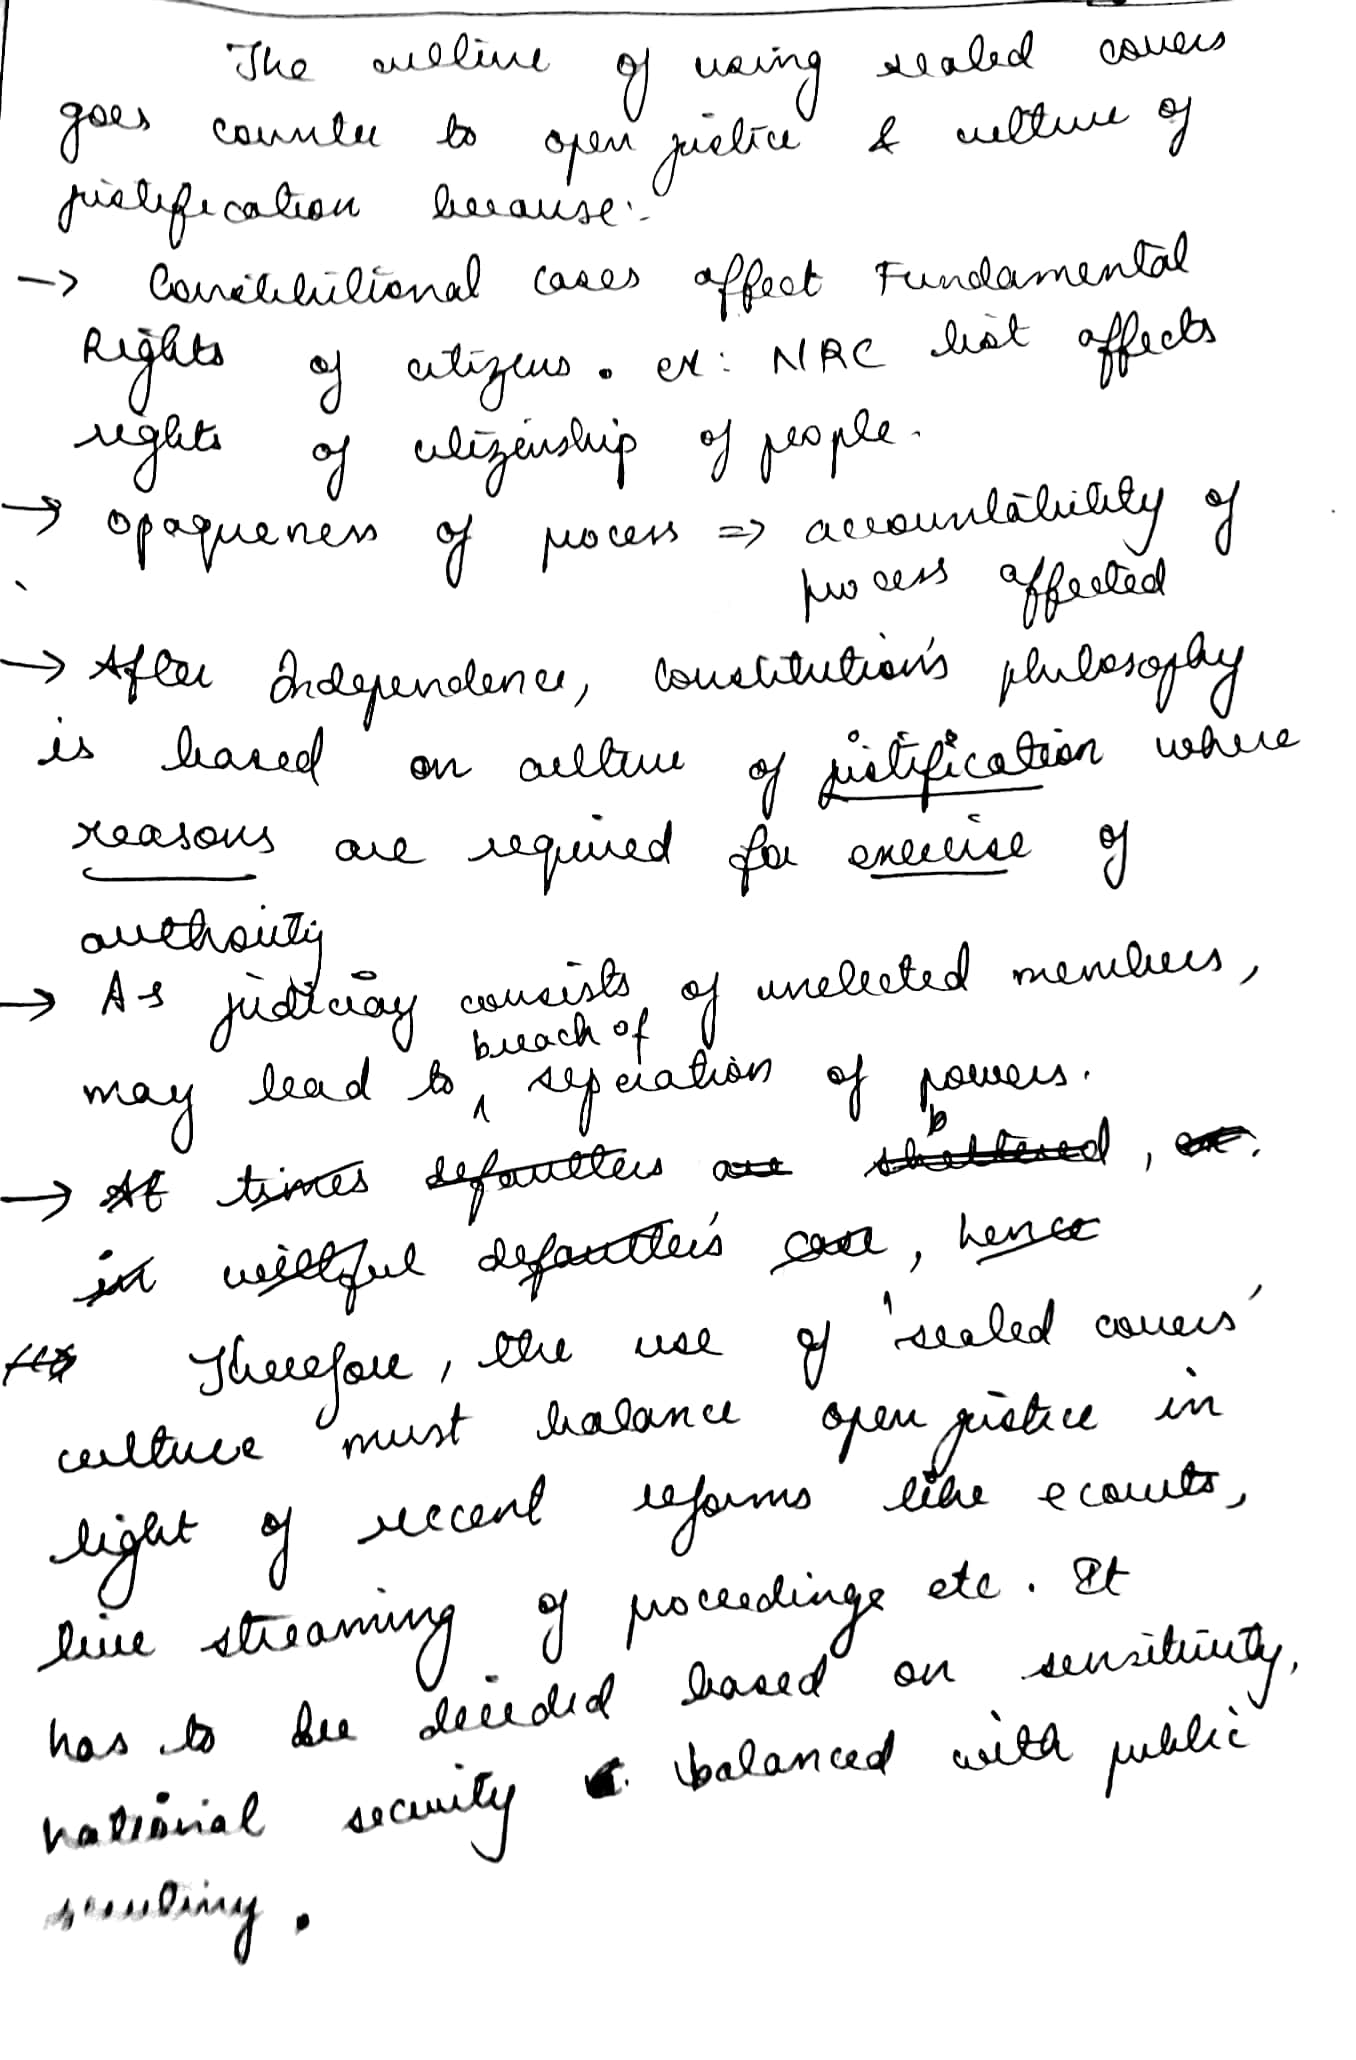 The culture of using sealed covers
goes counter to open justice & culture of
justification because:-
-> Constitutional cases affect Fundamental
Rights of citizens. ex: NRC list affects
rights of citizenship of people.
-> Opaqueness of process => accountability of
process affected
-> After Independence, Constitution's philosophy
is based on culture of justification where
reasons are required for exercise of
authority
-> As judiciary consists of unelected members,
breach of
may lead to ^ seperation of powers.
-> At times defaulters are shettered,
in willful defaulter's case, hence
Therefore, the use of 'sealed covers'
culture must balance open justice in
light of recent reforms like ecourts,
live streaming of proceedings etc. It
has to be decided based on sensitivity,
national security balanced with public
scrutiny.